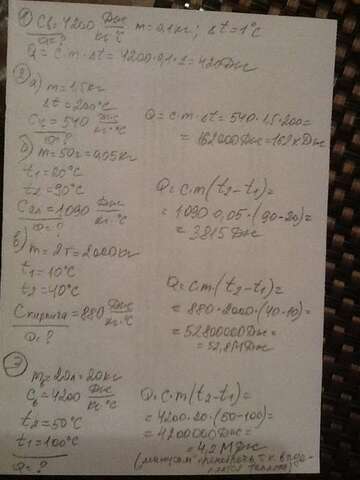 ① Cв = 4200 Дж/кг·°C m = 0,1 кг; Δt = 1°C
Q = ?
Q = c·m·Δt = 4200·0,1·1 = 420 Дж
② а) m = 1,5 кг
Δt = 200°C
Cч = 540 Дж/кг·°C
Q = ?
Q = c·m·Δt = 540·1,5·200 =
= 162000 Дж = 162 кДж
б) m = 50 г = 0,05 кг
t1 = 20°C
t2 = 90°C
Cал = 1090 Дж/кг·°C
Q = ?
Q = c·m(t2 - t1) =
= 1090·0,05·(90-20) =
= 3815 Дж
в) m = 2т = 2000 кг
t1 = 10°C
t2 = 40°C
Cкирпича = 880 Дж/кг·°C
Q = ?
Q = cm(t2 - t1) =
= 880·2000·(40-10) =
= 52800000 Дж =
= 52,8 МДж
③ m = 20л = 20кг
Cв = 4200 Дж/кг·°C
t2 = 50°C
t1 = 100°C
Q = ?
Q = c·m(t2 - t1) =
= 4200·20·(50-100) =
= 4200000 Дж =
= 4,2 МДж
(минусом т.к. выде-
ляется теплота)